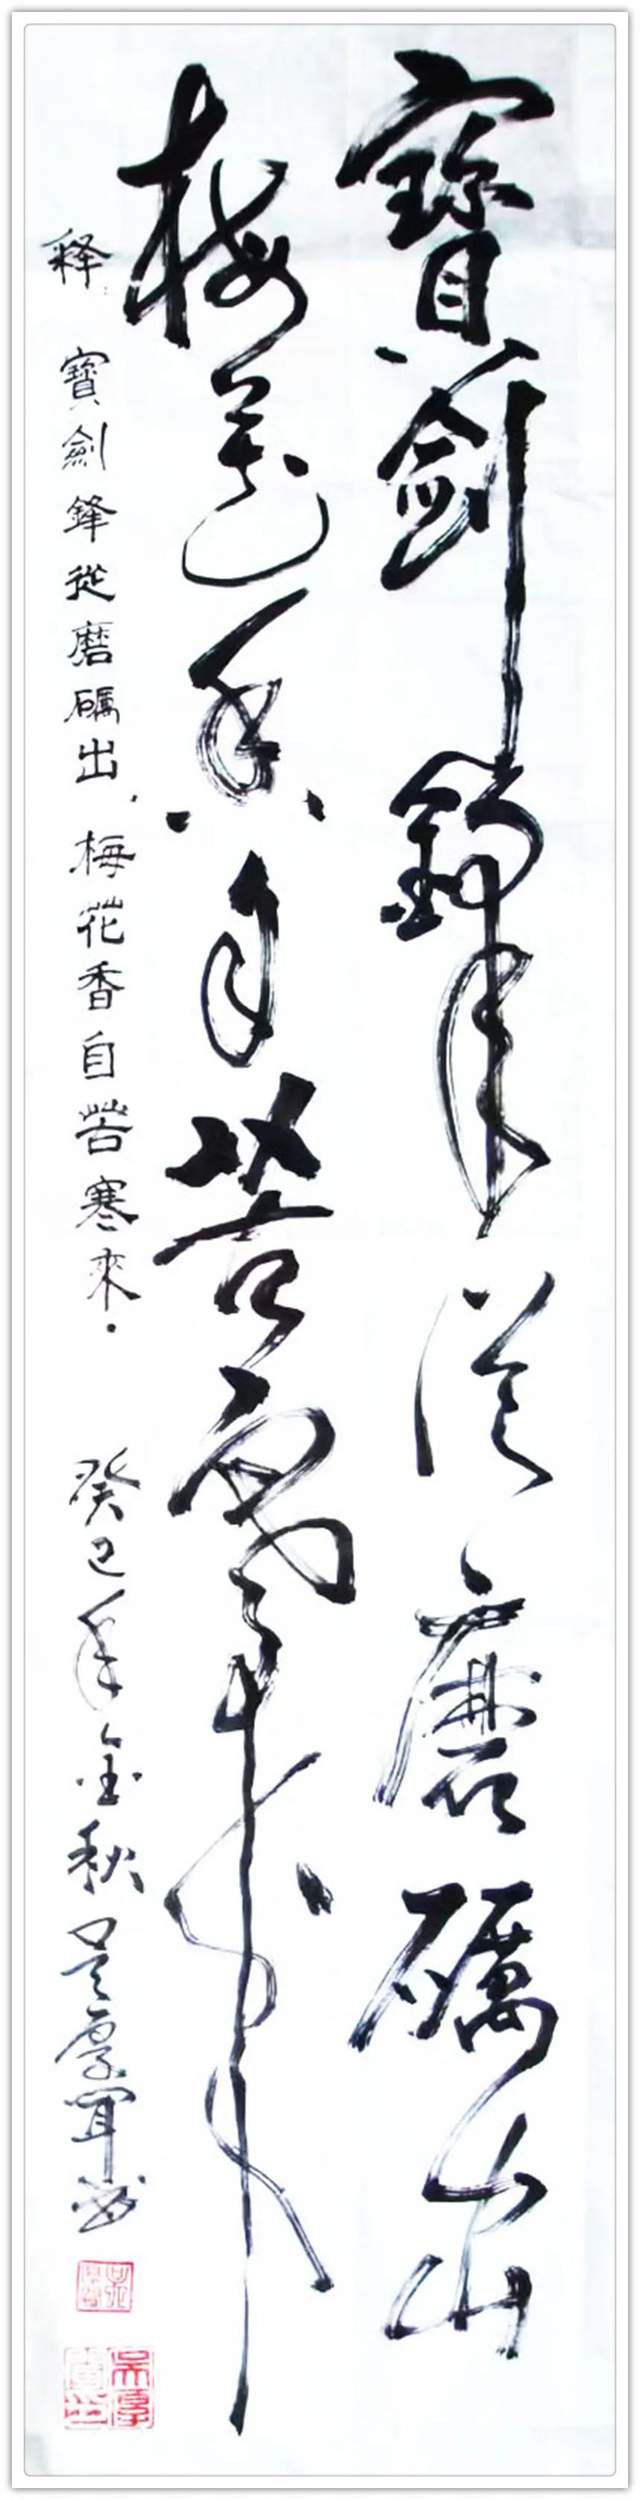 寶劍鋒從磨礪出
梅花香自苦寒來
释 寶劍鋒從磨礪出，梅花香自苦寒來．癸巳年金秋 吴厚